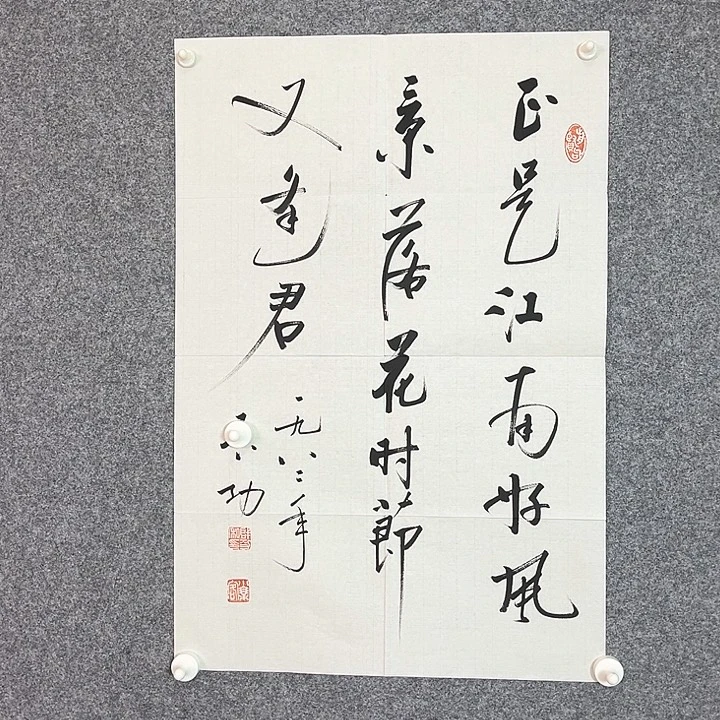 正是江南好风
景落花时節
又逢君
一九八二年
功